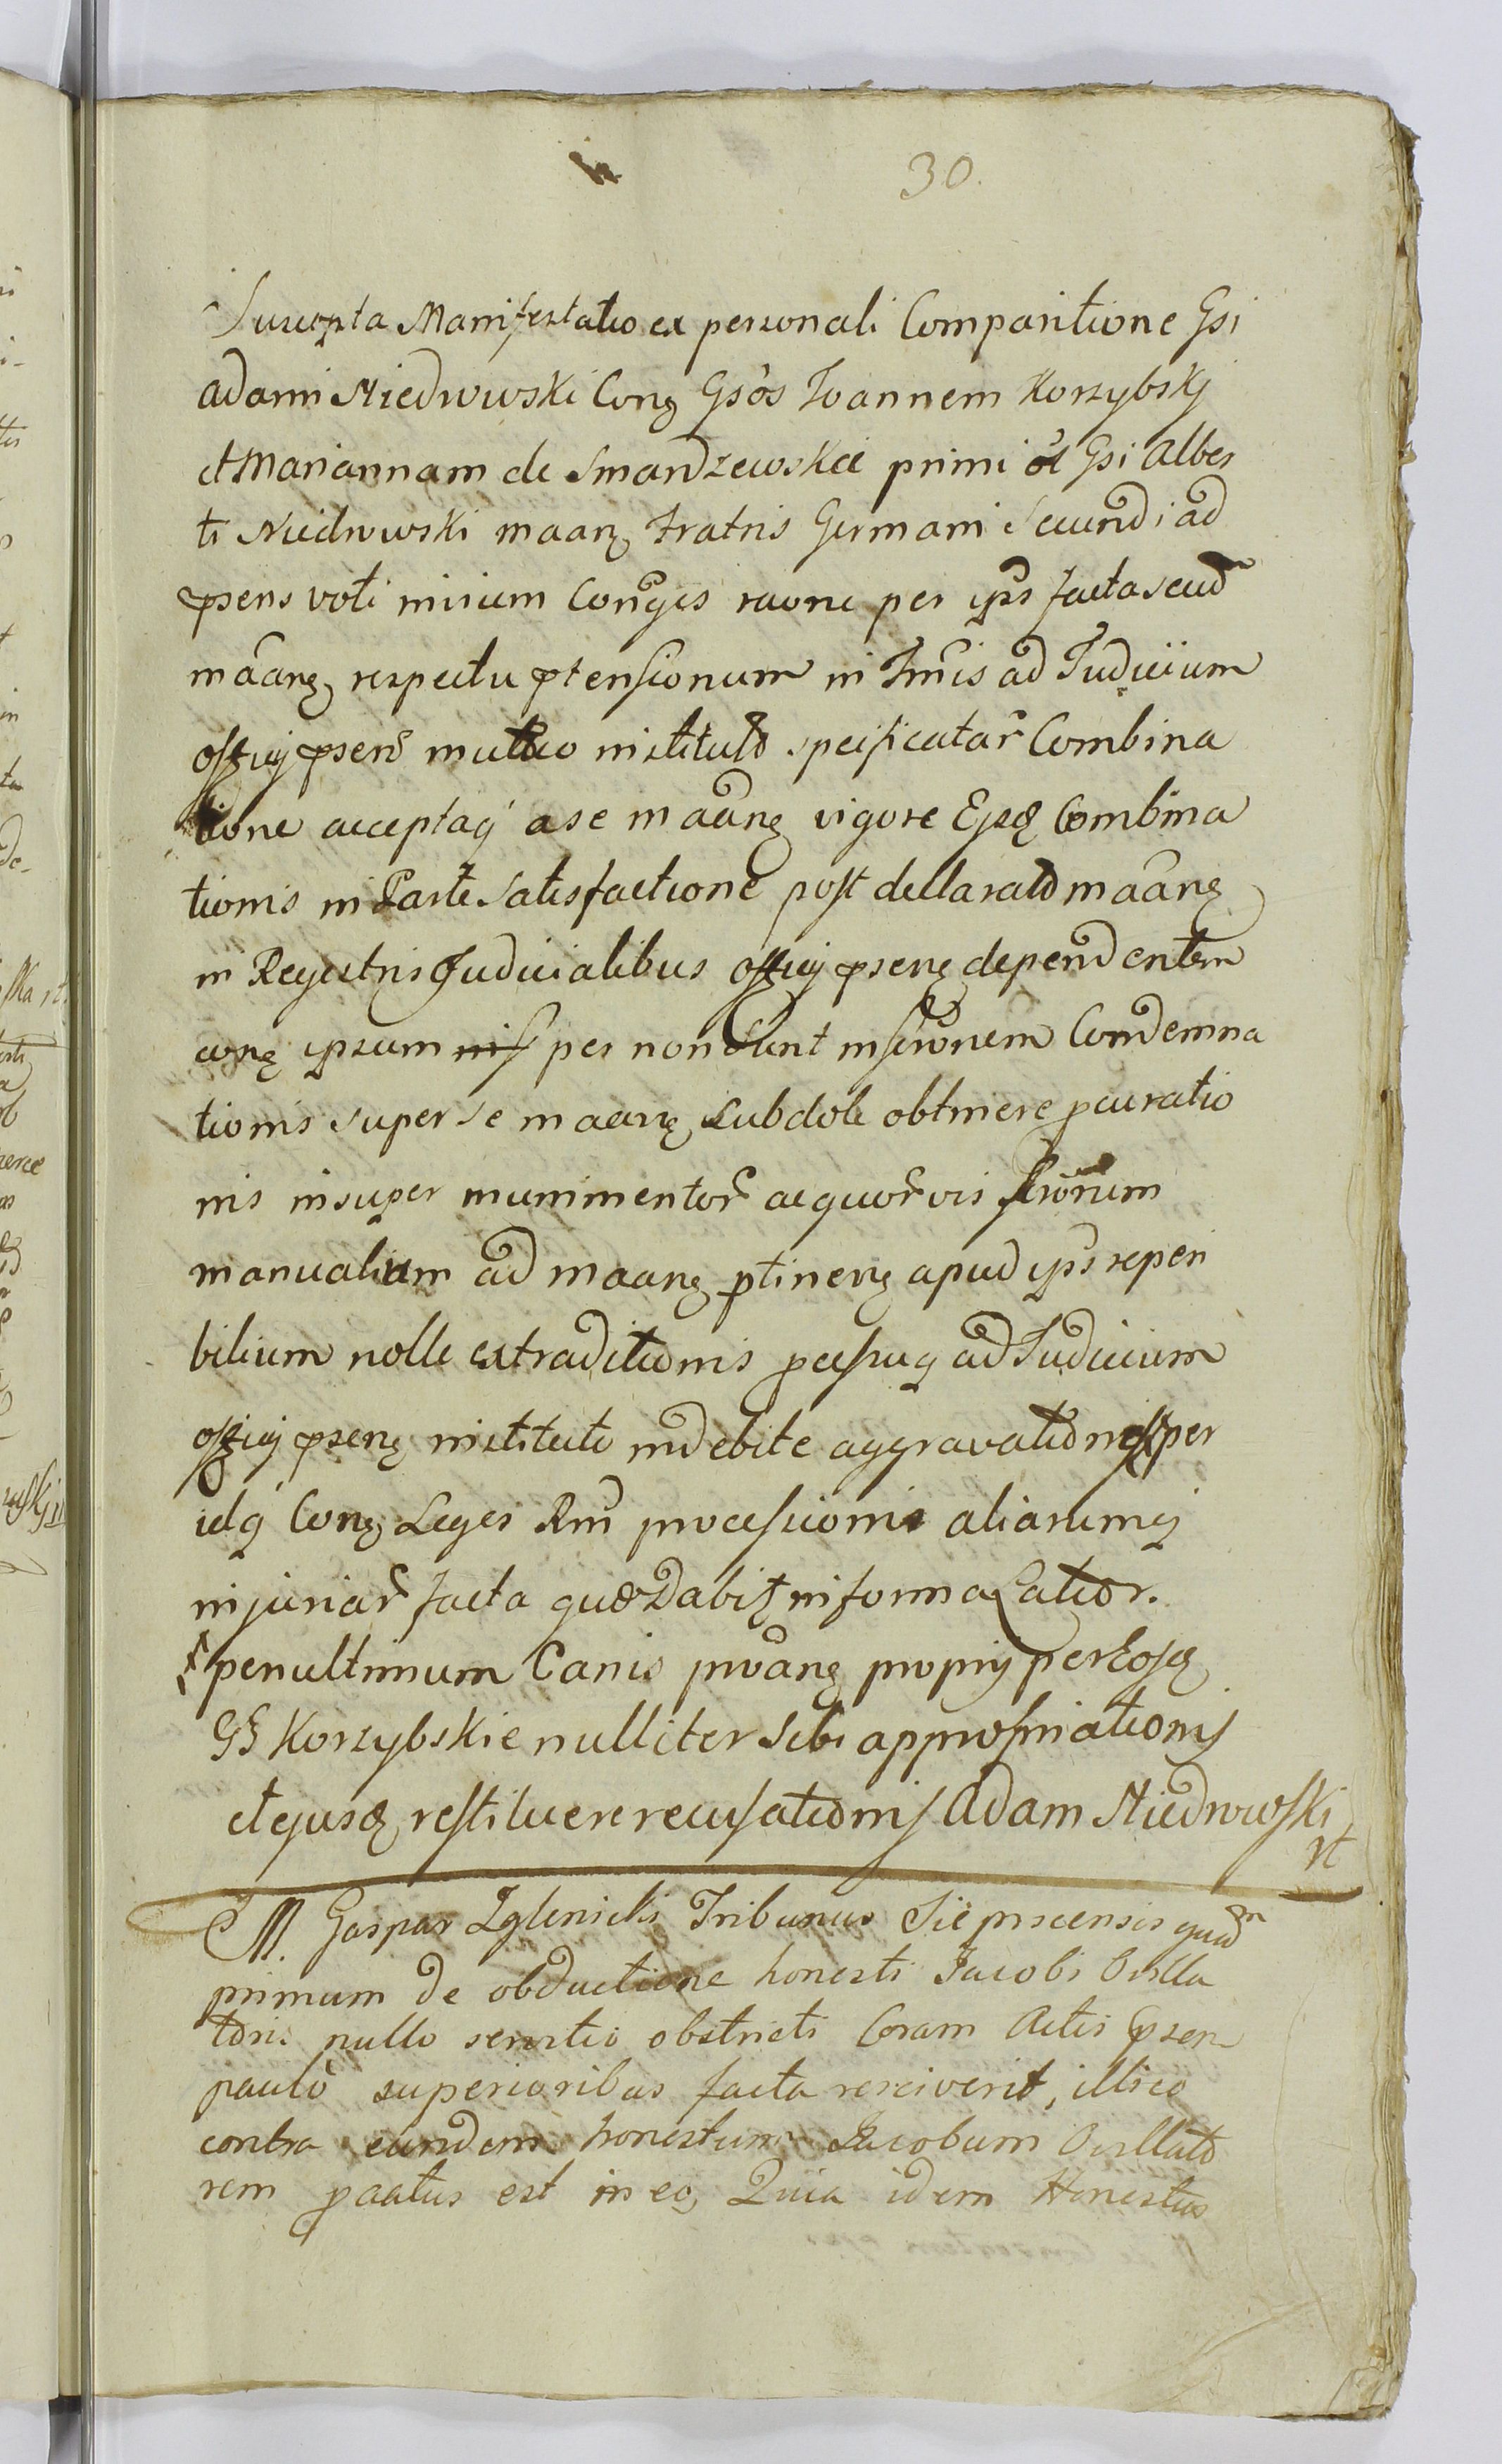 30.
Suscepta Manifestatio ex personali Comparitione Gsi
Adami Niedrowski Conę Gsõs Joannem Korzybskj
et Mariannam de Smardzewskie primi ol Gsi Alber
ti Niedrowski maanę Fratris Germani Secundi ad
psens voti inium Conges raone per ips facta seud
mãanę respectu ptensionum in Tmis ad Judicium
officij psens mutuo instituto specificatar Combina
tione acceptaq a se mãanę vigore Ejsdę Combina
tionis in Parte Satisfactione post dellarato mãanę
in Regestris Judicialibus officij psenę dependentem
conę ipsum per non insronem Condemna
tionis super se maanę subdole obtinere pcuratio
nis insuper munimentor aequorvis srionum
manualium ad maanę ptinenę apud ips reperi
bilium nolle extraditionis pcessuq ad Judicium
officij psenę instituti indebite aggravationis per
idq Conę Leges Rni processionis aliarumq
injuriar facta quo Dabit in forma Latior.
penultimum Canis pmoanę proprij per Eosdę
GS Korzybskie nulliter sibi appropriationis
et ejusdę restituere recusationis Adam Niedrowski
rt
M. Gaspar Zglenicki Tribunus Siepscensis quad
primum de obductione honesti Jacobi Ovilla
toris nullo servitio obstricti Coram Actis psen
paulò superioribus facta resciverit, illico
contra eundem honestum Jacobum Ovillato
rem ptatus est in eo, Quia idem Honestus